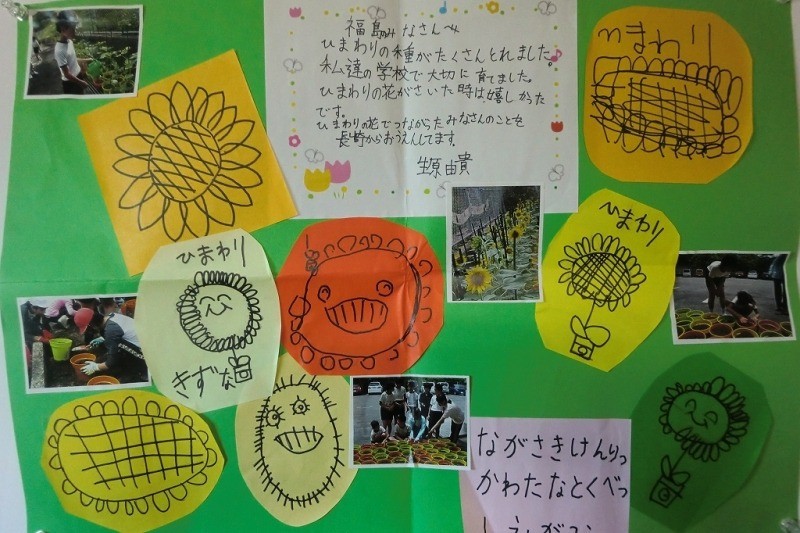 福島みなさんへ
ひまわりの種がたくさんとれました。
私達の学校で大切に育てました。
ひまわりの花がさいた時は嬉しかった
です。
ひまわりの花でつながったみなさんのことを
長崎からおうえんしてます。
生原由貴
ひまわり
ひまわり
ひまわり
きずな
ながさきけんりっ
かわたなとくべっ